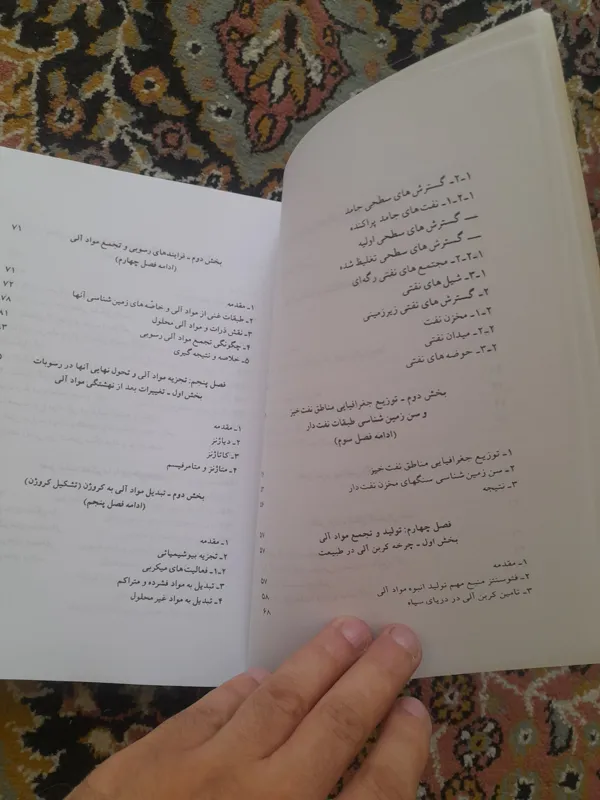 ۱-۲- گسترش های سطحی جامد
۱-۲-۱- نفت های جامد پراکنده
— گسترش های سطحی اولیه
— گسترش های سطحی تغلیظ شده
۲-۲-۱- مجتمع های نفتی رگه ای
۳-۱- شیل های نفتی
۲- گسترش های نفتی زیرزمینی
۱-۲- مخزن نفت
۲-۲- میدان نفتی
۳-۲- حوضه های نفتی
بخش دوم - توزیع جغرافیایی مناطق نفت خیز
و سن زمین شناسی طبقات نفت دار
(ادامه فصل سوم)
۱- توزیع جغرافیایی مناطق نفت خیز
۲- سن زمین شناسی سنگهای مخزن نفت دار
۳- نتیجه
فصل چهارم: تولید و تجمع مواد آلی
بخش اول - چرخه کربن آلی در طبیعت
۱- مقدمه ۵۷
۲- فتوسنتز منبع مهم تولید انبوه مواد آلی ۵۸
۳- تامین کربن آلی در دریای سیاه ۶۸
بخش دوم - فرایندهای رسوبی و تجمع مواد آلی ۷۱
(ادامه فصل چهارم)
۱- مقدمه ۷۱
۲- طبقات غنی از مواد آلی و خاصّه های زمین شناسی آنها ۷۲
۳- نقش ذرات و مواد آلی محلول ۷۸
۴- چگونگی تجمع مواد آلی رسوبی
۵- خلاصه و نتیجه گیری
فصل پنجم: تجزیه مواد آلی و تحول نهایی آنها در رسوبات
بخش اول - تغییرات بعد از نهشتگی مواد آلی
۱- مقدمه
۲- دیاژنز
۳- کاتاژنز
۴- متاژنز و متامرفیسم
بخش دوم - تبدیل مواد آلی به کروژن (تشکیل کروژن)
(ادامه فصل پنجم)
۱- مقدمه
۲- تجزیه بیوشیمیائی
۱-۲- فعالیت های میکربی
۳- تبدیل به مواد فشرده و متراکم
۴- تبدیل به مواد غیر محلول